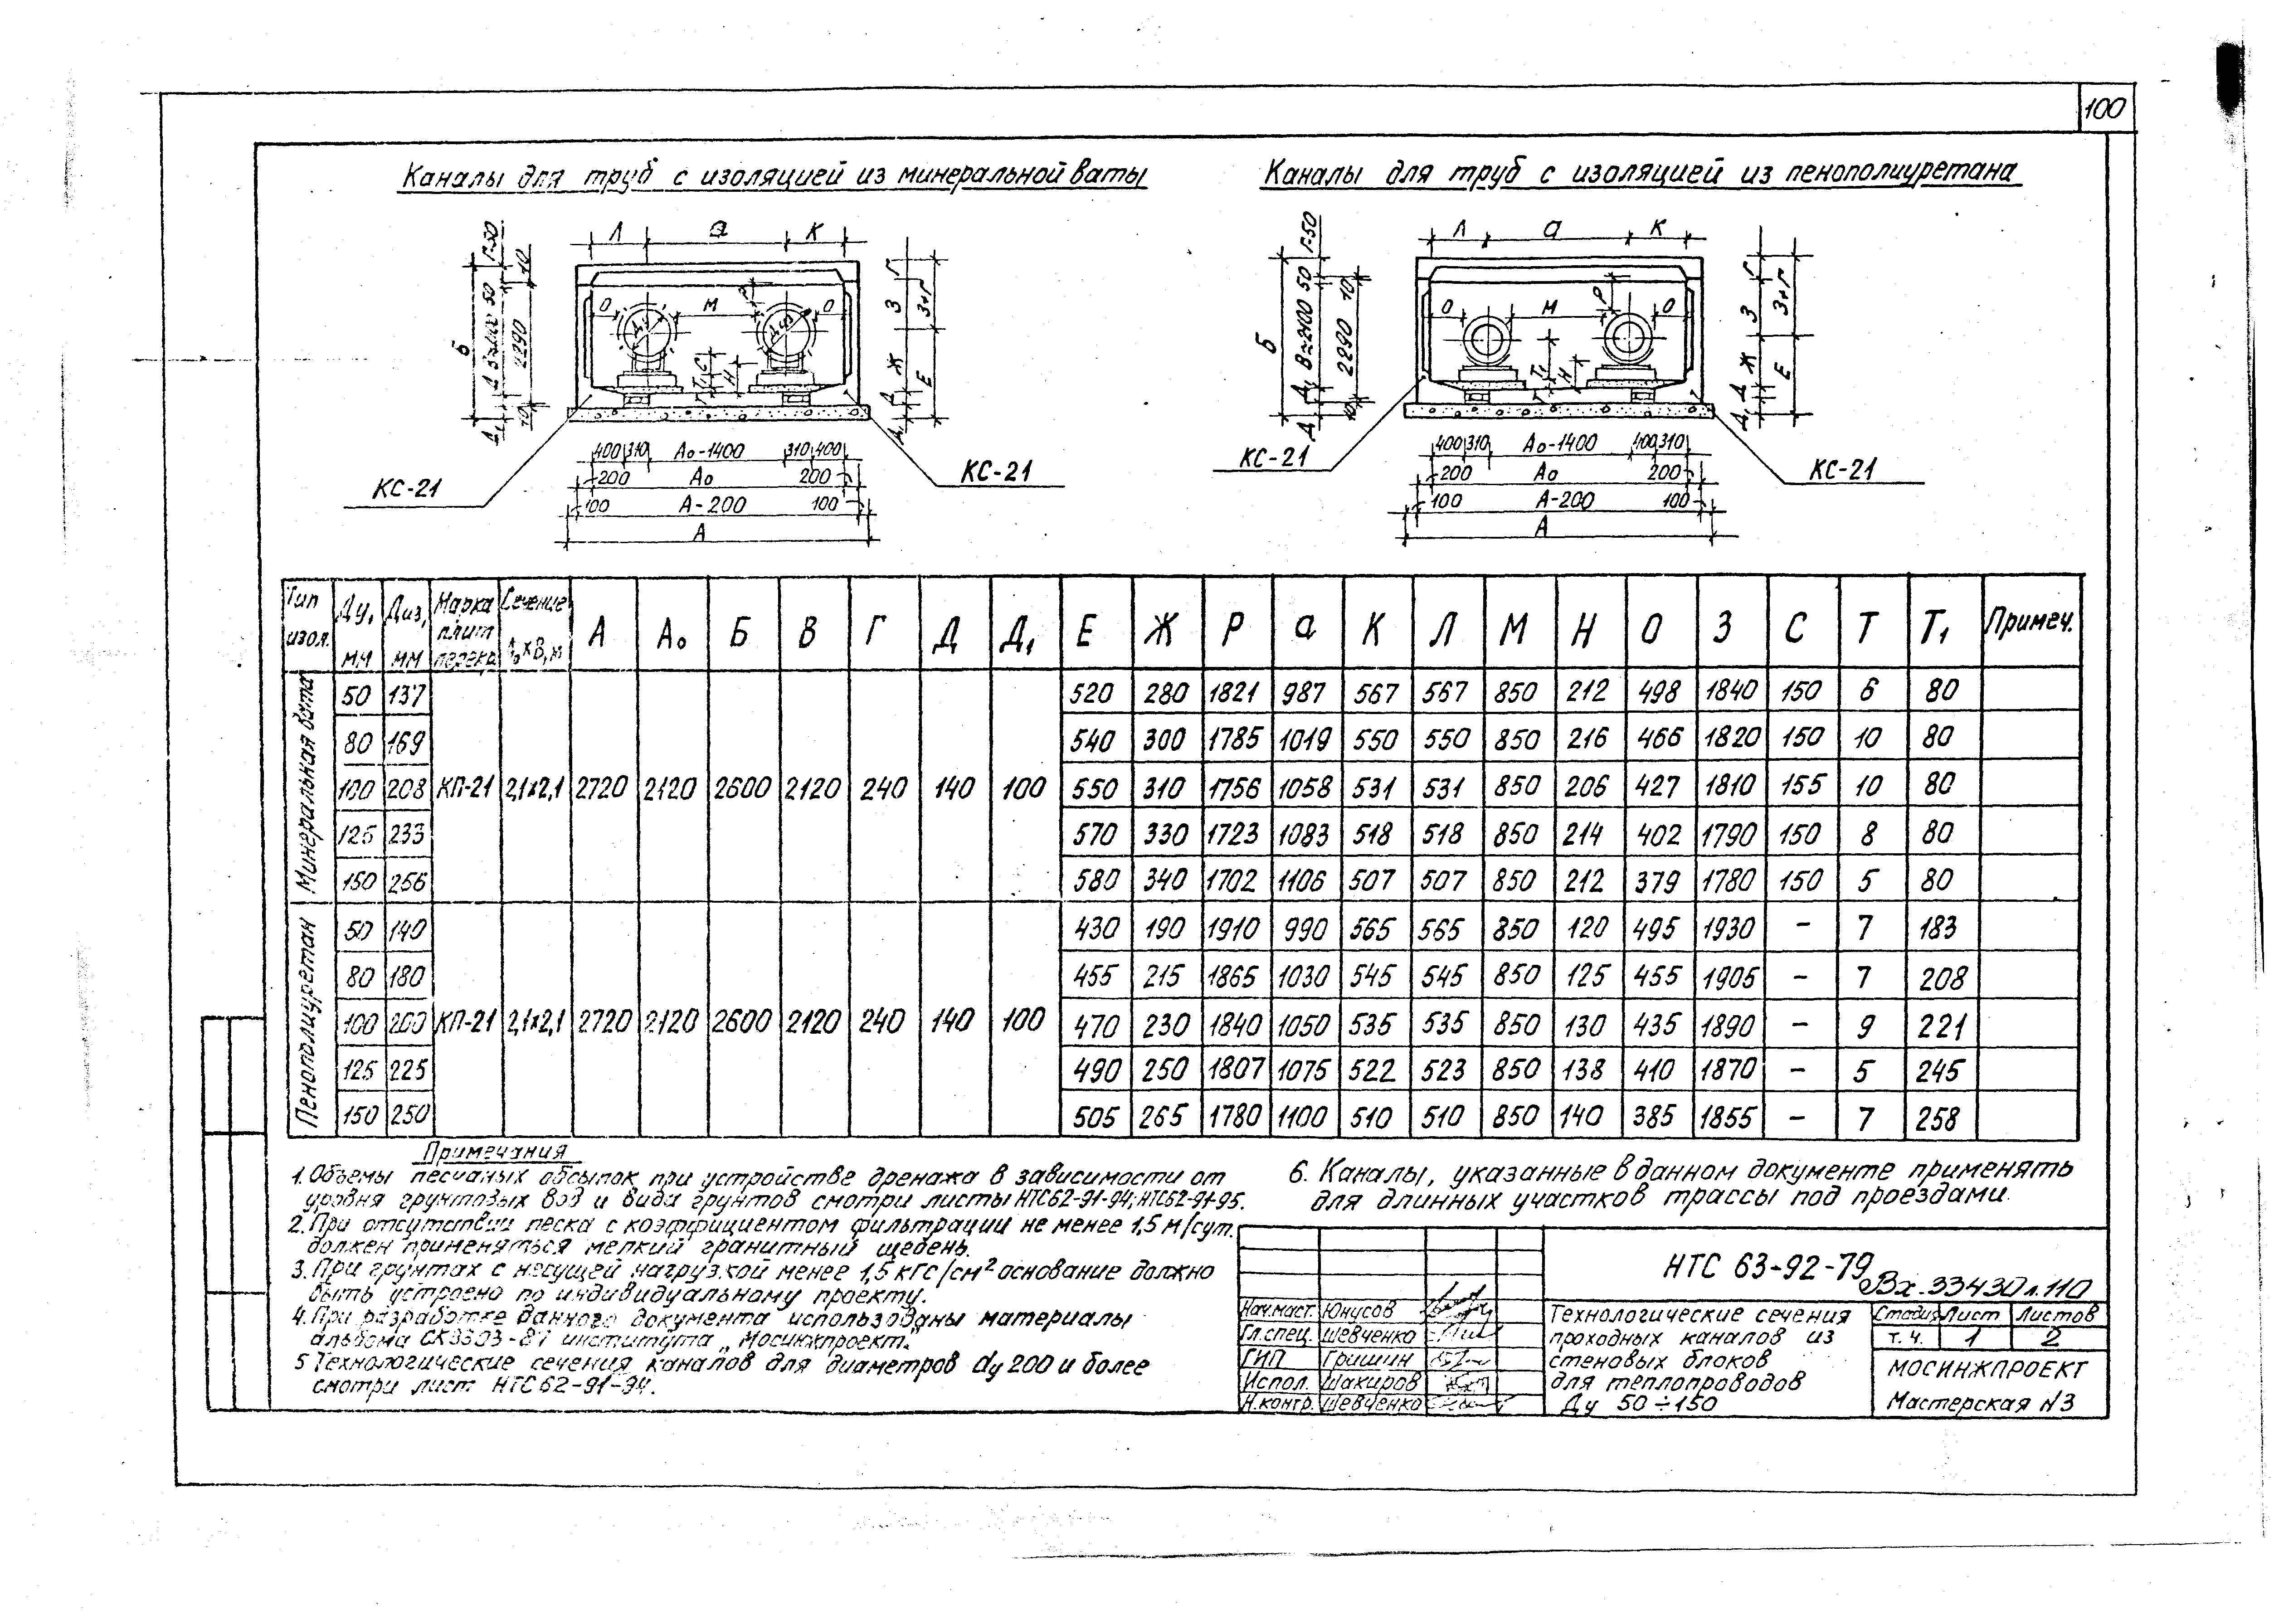 100
Каналы для труб с изоляцией из минеральной ваты
Каналы для труб с изоляцией из пенополиуретана
Л а К
Г-50
10
50
2290
Б
О М О
Р
Г
З
З+Г
Ж
Е
С
Т₁
Н
Д
Д₁
400 310 А₀-1400 310 400
200 А₀ 200
100 А-200 100
А
КС-21
КС-21
Л а К
Г-50
50
10
В=2100
2290
Б
О М О
Р
Г
З
З+Г
Ж
Е
Т₁
Н
Д
Д₁
400 310 А₀-1400 400 310
200 А₀ 200
100 А-200 100
А
КС-21
КС-21
Тип изол. Ду, мм Диз, мм Марка плит перекр. Сечение А₀×В, м А А₀ Б В Г Д Д₁ Е Ж Р а К Л М Н О З С Т Т₁ Примеч.
Минеральная вата
50 137 520 280 1821 987 567 567 850 212 498 1840 150 6 80
80 169 540 300 1785 1019 550 550 850 216 466 1820 150 10 80
100 208 КП-21 2,1×2,1 2720 2120 2600 2120 240 140 100 550 310 1756 1058 531 531 850 206 427 1810 155 10 80
125 233 570 330 1723 1083 518 518 850 214 402 1790 150 8 80
150 256 580 340 1702 1106 507 507 850 212 379 1780 150 5 80
Пенополиуретан
50 140 430 190 1910 990 565 565 850 120 495 1930 – 7 183
80 180 455 215 1865 1030 545 545 850 125 455 1905 – 7 208
100 200 КП-21 2,1×2,1 2720 2120 2600 2120 240 140 100 470 230 1840 1050 535 535 850 130 435 1890 – 9 221
125 225 490 250 1807 1075 522 523 850 138 410 1870 – 5 245
150 250 505 265 1780 1100 510 510 850 140 385 1855 – 7 258
Примечания
1. Объемы песчаных обсыпок при устройстве дренажа в зависимости от
уровня грунтовых вод и вида грунтов смотри листы НТС62-91-94; НТС62-91-95.
2. При отсутствии песка с коэффициентом фильтрации не менее 1,5 м/сут.
должен применяться мелкий гранитный щебень.
3. При грунтах с несущей нагрузкой менее 1,5 кгс/см² основание должно
быть устроено по индивидуальному проекту.
4. При разработке данного документа использованы материалы
альбома СК3303-87 института „Мосинжпроект."
5 Технологические сечения каналов для диаметров dу 200 и более
смотри лист НТС62-91-94.
6. Каналы, указанные в данном документе применять
для длинных участков трассы под проездами.
НТС 63-92-79
Вх.33430л.110
Нач.маст. Юнусов
Гл.спец. Шевченко
ГИП Гришин
Испол. Шакиров
Н.контр. Шевченко
Технологические сечения
проходных каналов из
стеновых блоков
для теплопроводов
Ду 50÷150
Стадия Лист Листов
т.ч. 1 2
МОСИНЖПРОЕКТ
Мастерская N3